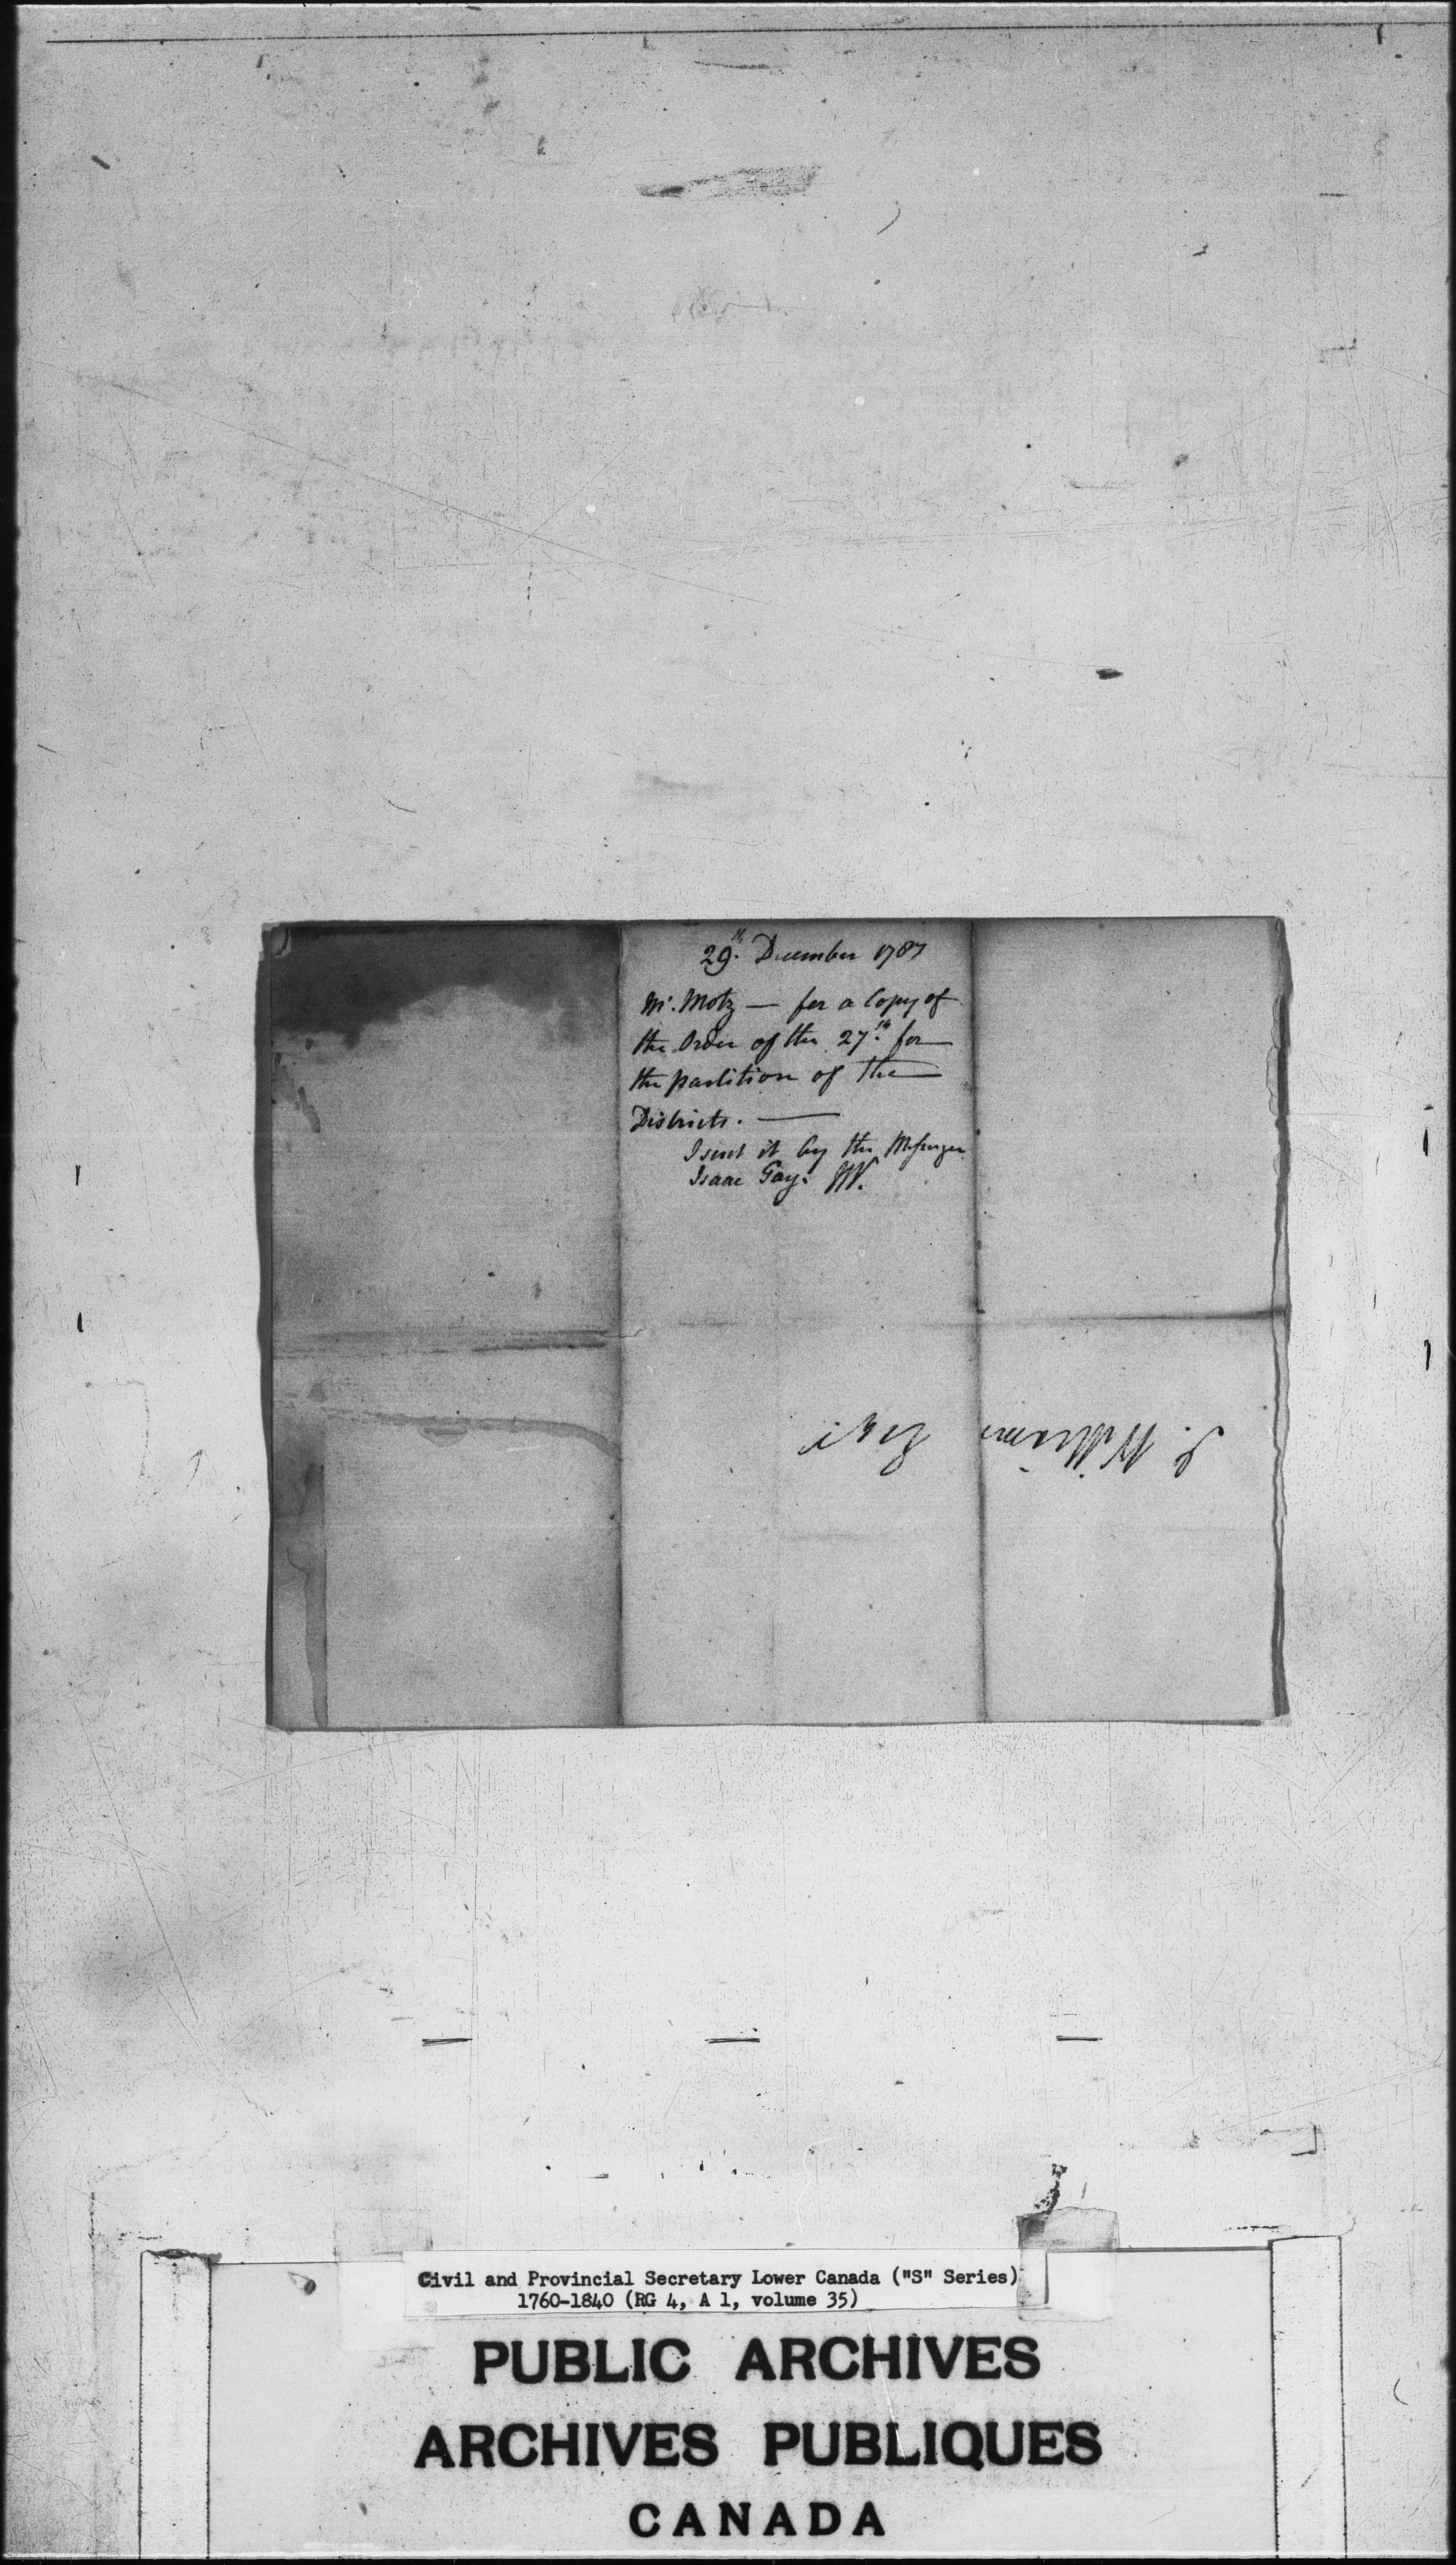 29th. December 1787
Mr. Motz — for a Copy of
the Order of the 27th. for
the partition of the
Districts. —
I sent it by the Messenger
Isaac Gay. W.
J. Williams Esqr
Civil and Provincial Secretary Lower Canada ("S" Series)
1760-1840 (RG 4, A 1, volume 35)
PUBLIC ARCHIVES
ARCHIVES PUBLIQUES
CANADA